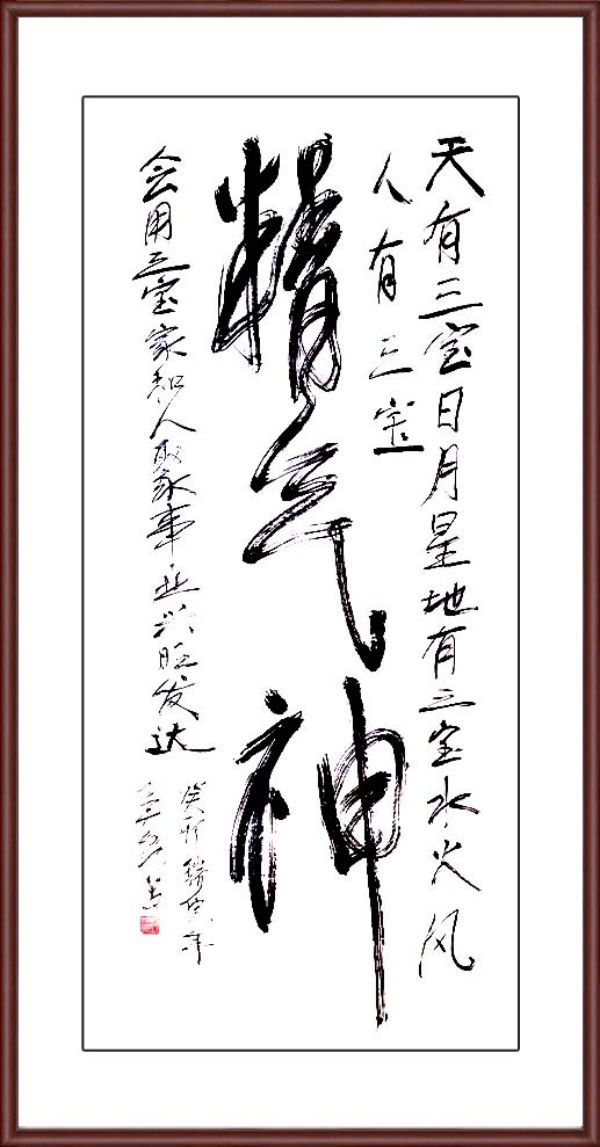 天有三宝日月星地有三宝水火风
人有三宝
精气神
会用三宝家和人聚事业兴旺发达
癸卯